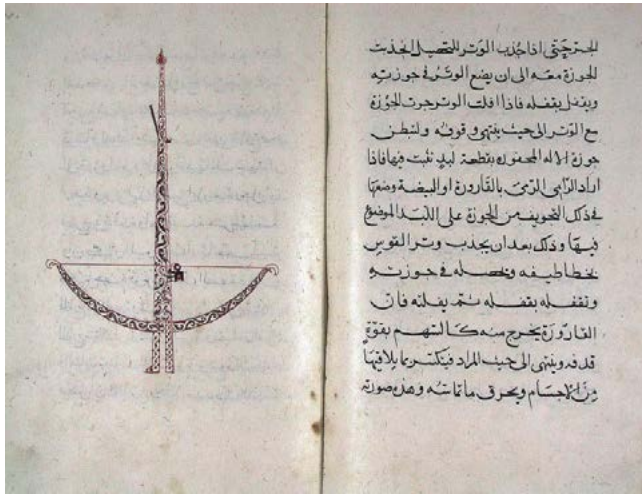 حتى اذا جذب الوتر للتحصيل انجذبت
الجوزة معه الى ان يضع الوتر في جوزته
ويقفل بقفله فاذا افلت الوتر جرت الجوزة
مع الوتر الى حيث ينتهي وقوفه ولتبطن
جوزة الاله المحفوره بقطعة لبد تثبت فيها فاذا
اراد الرامي الرمي بالقارورة او البيضة وضعها
في ذلك التجويف من الجوزة على اللبد الموضوع
فيها وذلك بعد ان يجذب وتر القوس
بخطاطيفه ويحصله في جوزته
ونقفله بقفله ثم يفلته فان
القارورة يخرج منه كالسهم بقوة
قدفه وينتهى الى حيث المراد فينكسر بما يلاقيها
من الاجسام ويحرق ما تماسه وهذه صورته